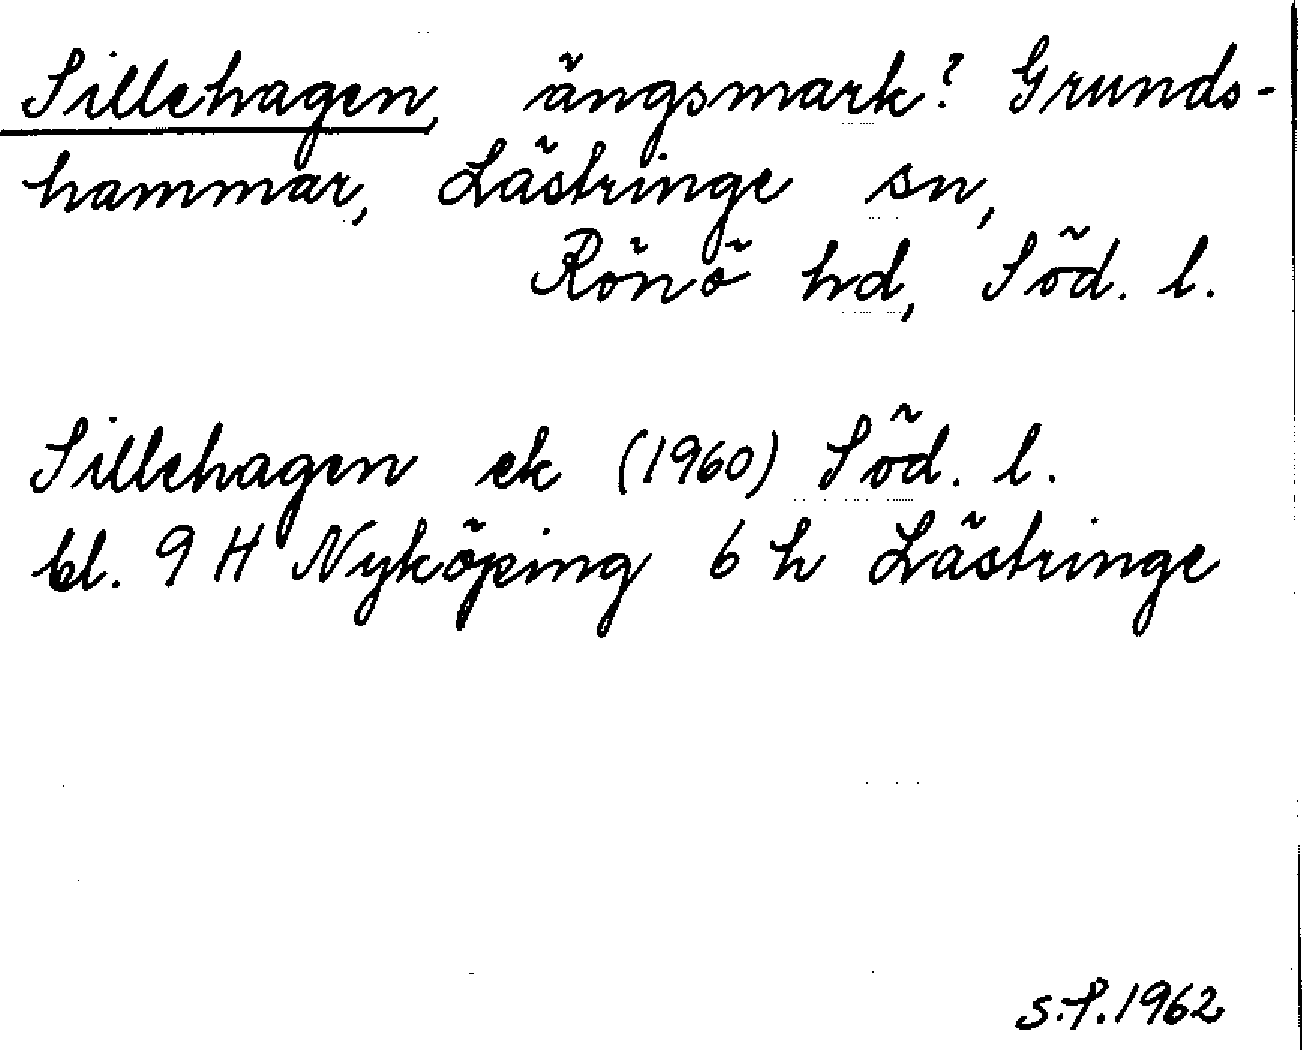 Sillehagen, ängsmark? Grunds-
hammar, Lästringe sn,
Rönö hd, Söd. l.
Sillehagen ek (1960) Söd. l.
bl. 9 H Nyköping 6 h Lästringe
S.P. 1962